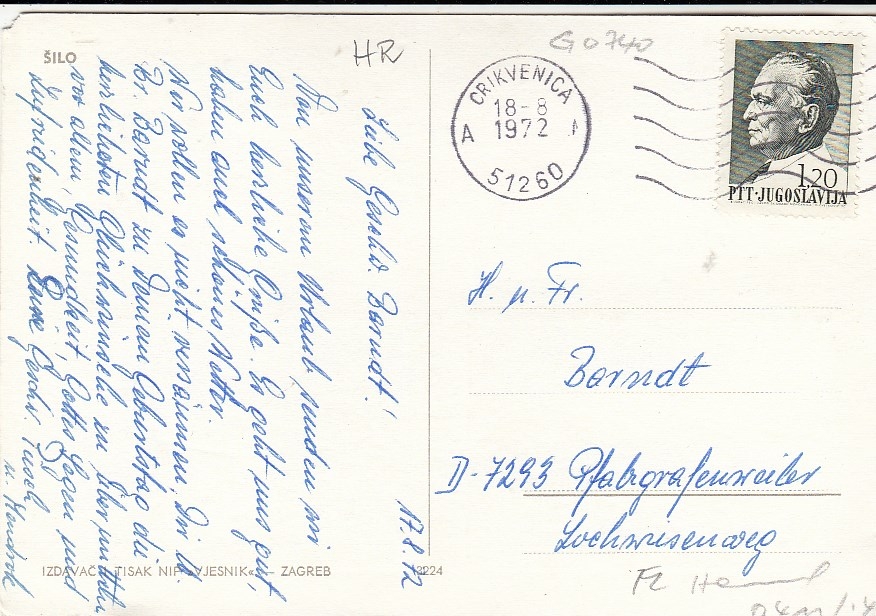 ŠILO
HR
G0740
CRIKVENICA
18-8
1972
A
51260
1,20
PTT·JUGOSLAVIJA
17.8.72
Liebe Geschw. Barndt!
Von unserem Urlaub senden wir
Euch herzliche Grüße. Es geht uns gut,
haben auch schönes Wetter.
Wir wollen es nicht versäumen, Dir lb.
Br. Barndt zu Deinem Geburtstag die
herzlichsten Glückwünsche zu übermitteln
vor allem, Gesundheit, Gottes Segen und
Zufriedenheit. Eure Geschw.
u.
H. u. Fr.
Barndt
D-7293 Pfalzgrafenweiler
Lochwiesenweg
IZDAVAČ I TISAK NIP »VJESNIK« — ZAGREB